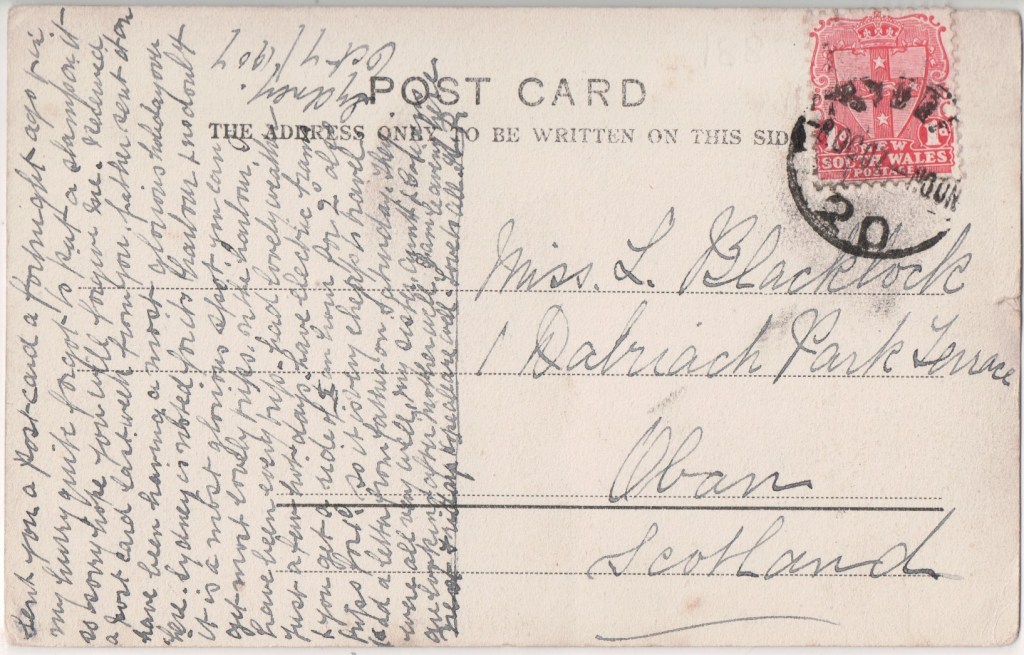 POST CARD
THE ADDRESS ONLY TO BE WRITTEN ON THIS SIDE
NEW
SOUTH WALES
POSTAGE
1d
20
Miss. L. Blacklock
1 Dalriach Park Terrace
Oban
Scotland
Sydney.
Oct 7/1907
sent you a postcard a fortnight ago & in
my hurry quite forgot to put a stamp on it
so sorry hope you will forgive me. Received
a post card last week from you, father sent it on
have been having a most glorious holiday over
here. Sydney is noted for its Harbour & no doubt
it is a most glorious spot, you can
get most lovely trips on the harbour,
have been every trip, had lovely weather
just a few hot days, have electric trams
& you get a ride of an hour for 2ᵈ also
trips for so it is very cheap to travel
had a letter from father on Saturday, they
were all very well, my sister
are looking after mother while I am
love to all